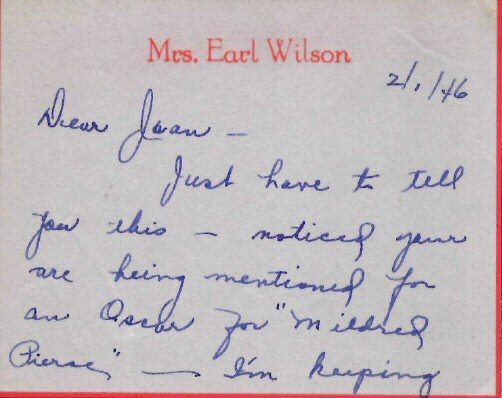 Mrs. Earl Wilson
2/1/46
Dear Joan —
Just have to tell
you this — noticed your
are being mentioned for
an Oscar for "Mildred
Pierse," — I'm keeping